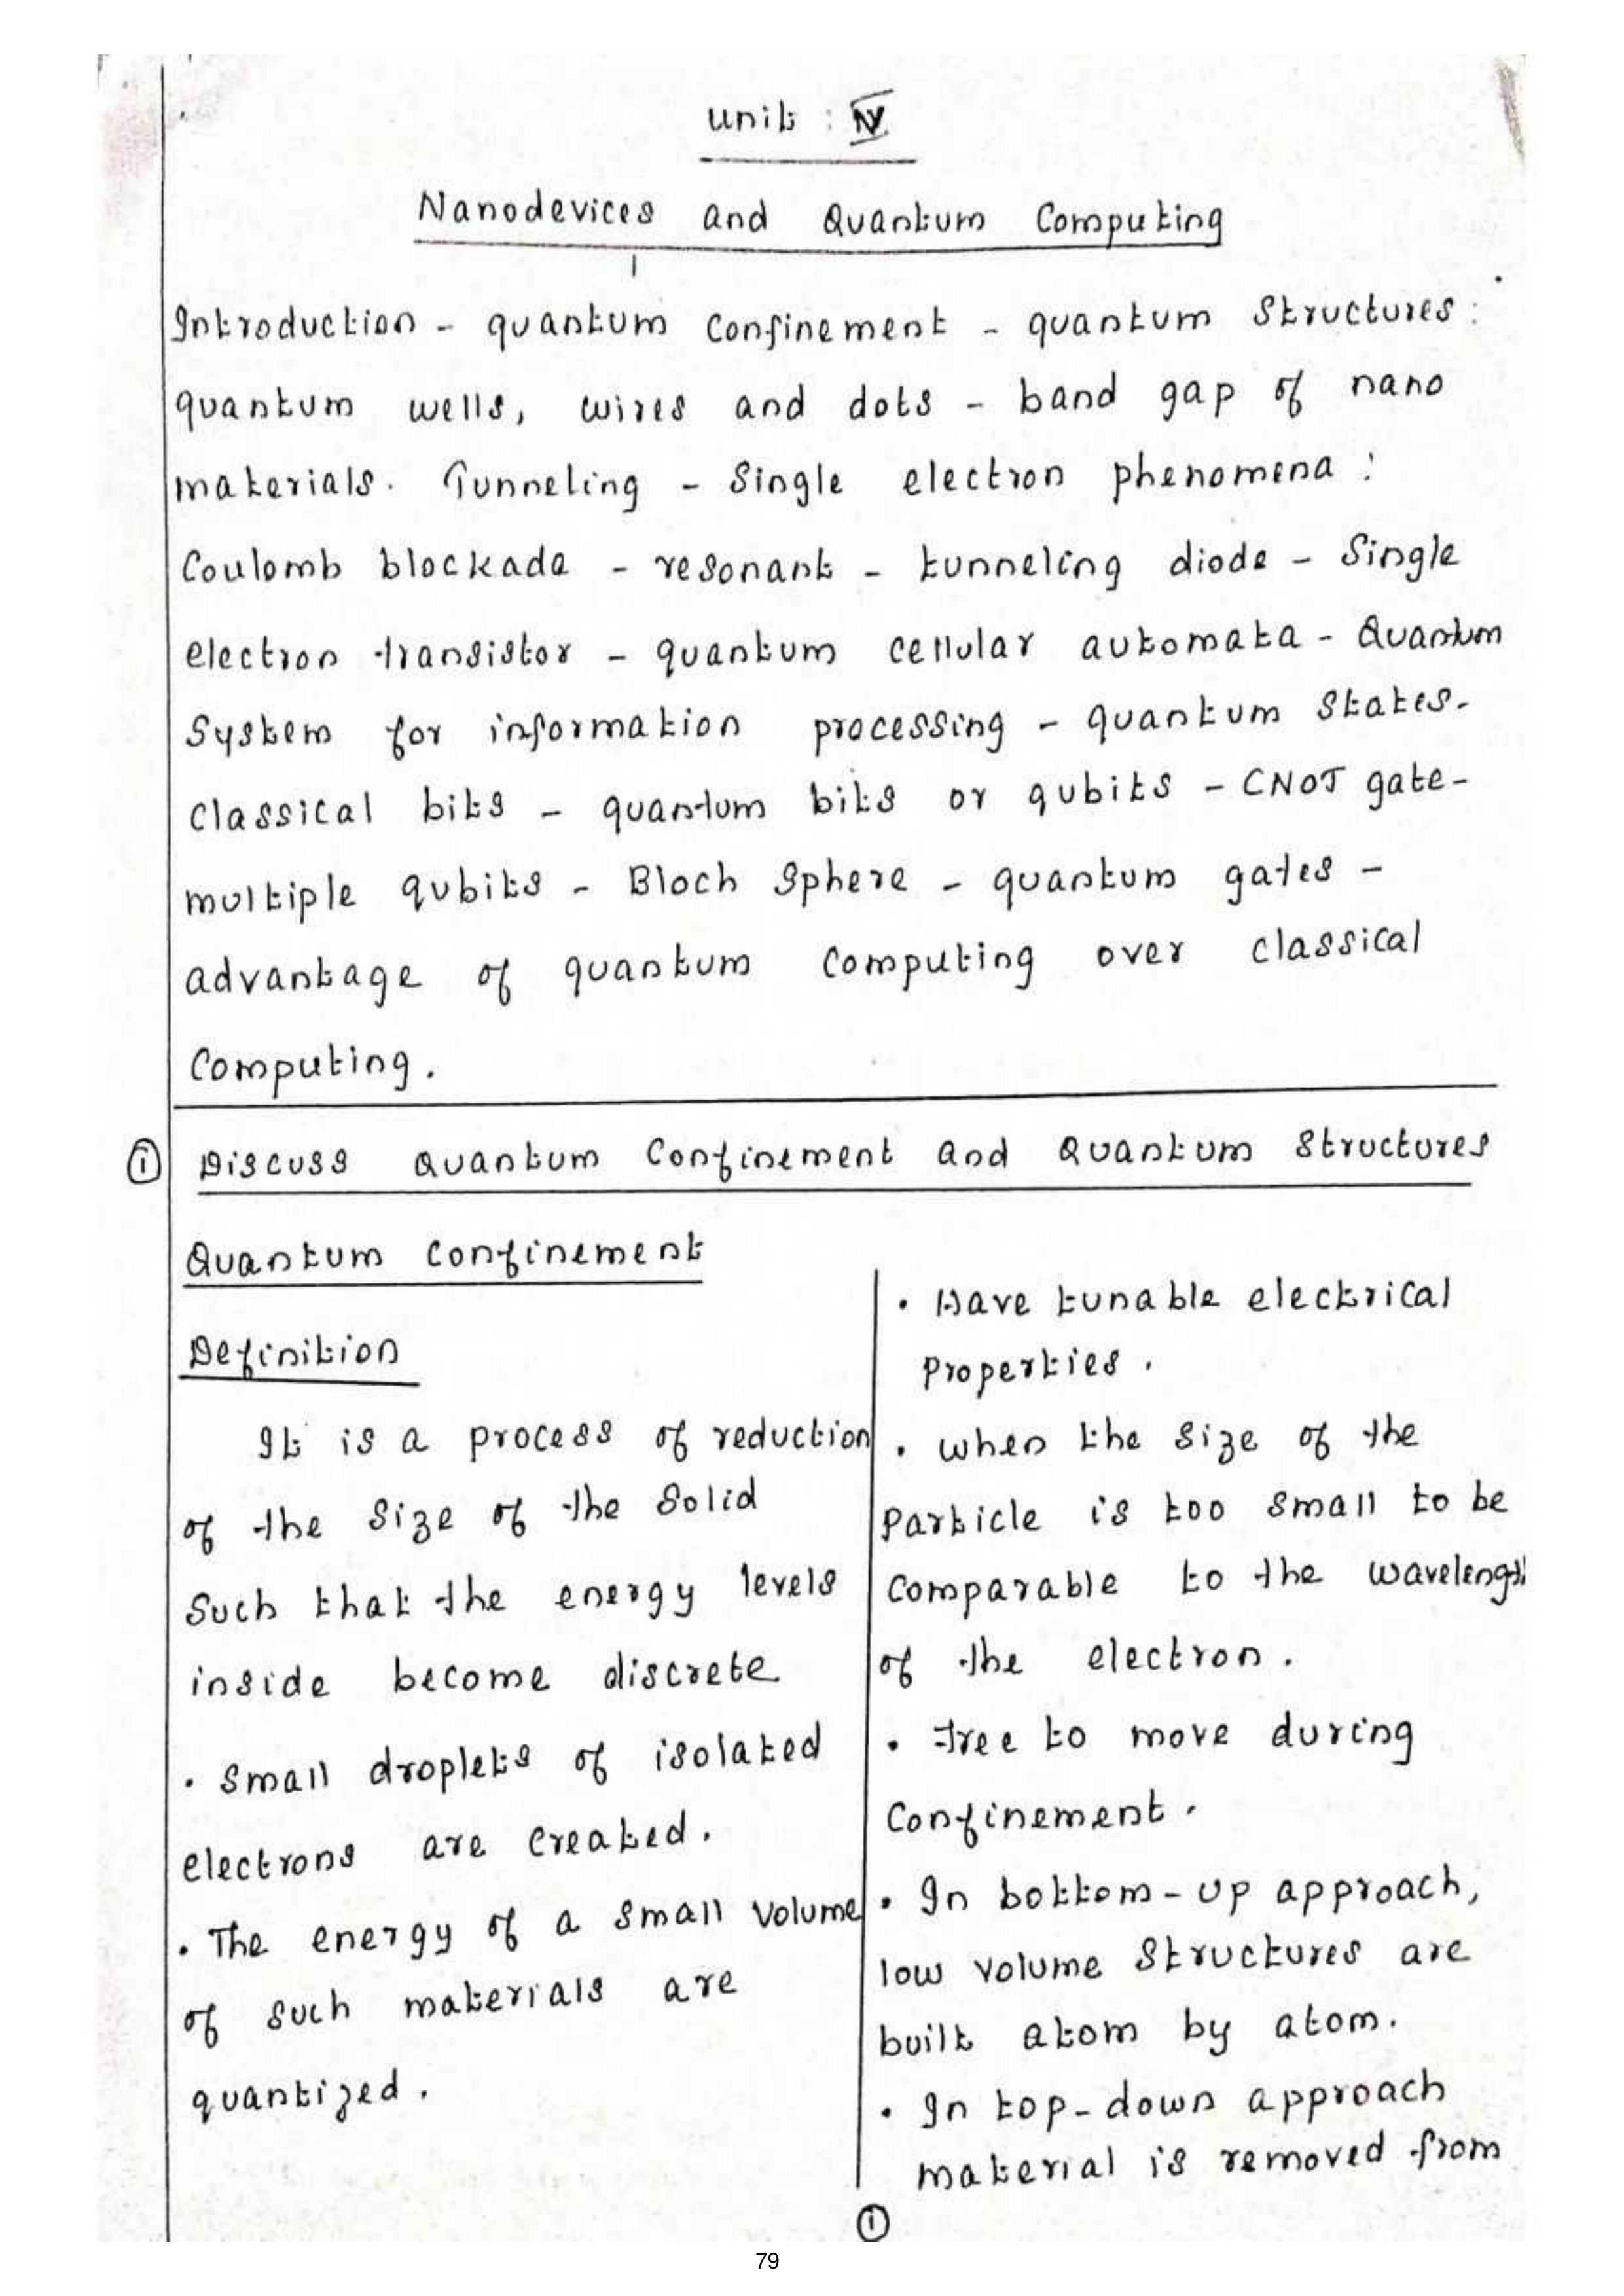 Unit : IV
Nanodevices and Quantum Computing
Introduction - quantum Confinement - quantum Structures:
quantum wells, wires and dots - band gap of nano
materials. Tunneling - Single electron phenomena :
Coulomb blockade - resonant - tunneling diode - Single
electron transistor - quantum cellular automata - Quantum
System for information processing - quantum States-
Classical bits - quantum bits or qubits - CNOT gate-
multiple qubits - Bloch Sphere - quantum gates -
advantage of quantum Computing over classical
Computing.
① Discuss Quantum Confinement and Quantum Structures
Quantum Confinement
Definition
It is a process of reduction
of the Size of the Solid
Such that the energy levels
inside become discrete
• Small droplets of isolated
electrons are created.
• The energy of a small volume
of such materials are
quantized.
• Have tunable electrical
Properties.
• when the size of the
Particle is too small to be
Comparable to the wavelength
of the electron.
• free to move during
Confinement.
• In bottom-up approach,
low volume Structures are
built atom by atom.
• In top-down approach
material is removed from
①
79